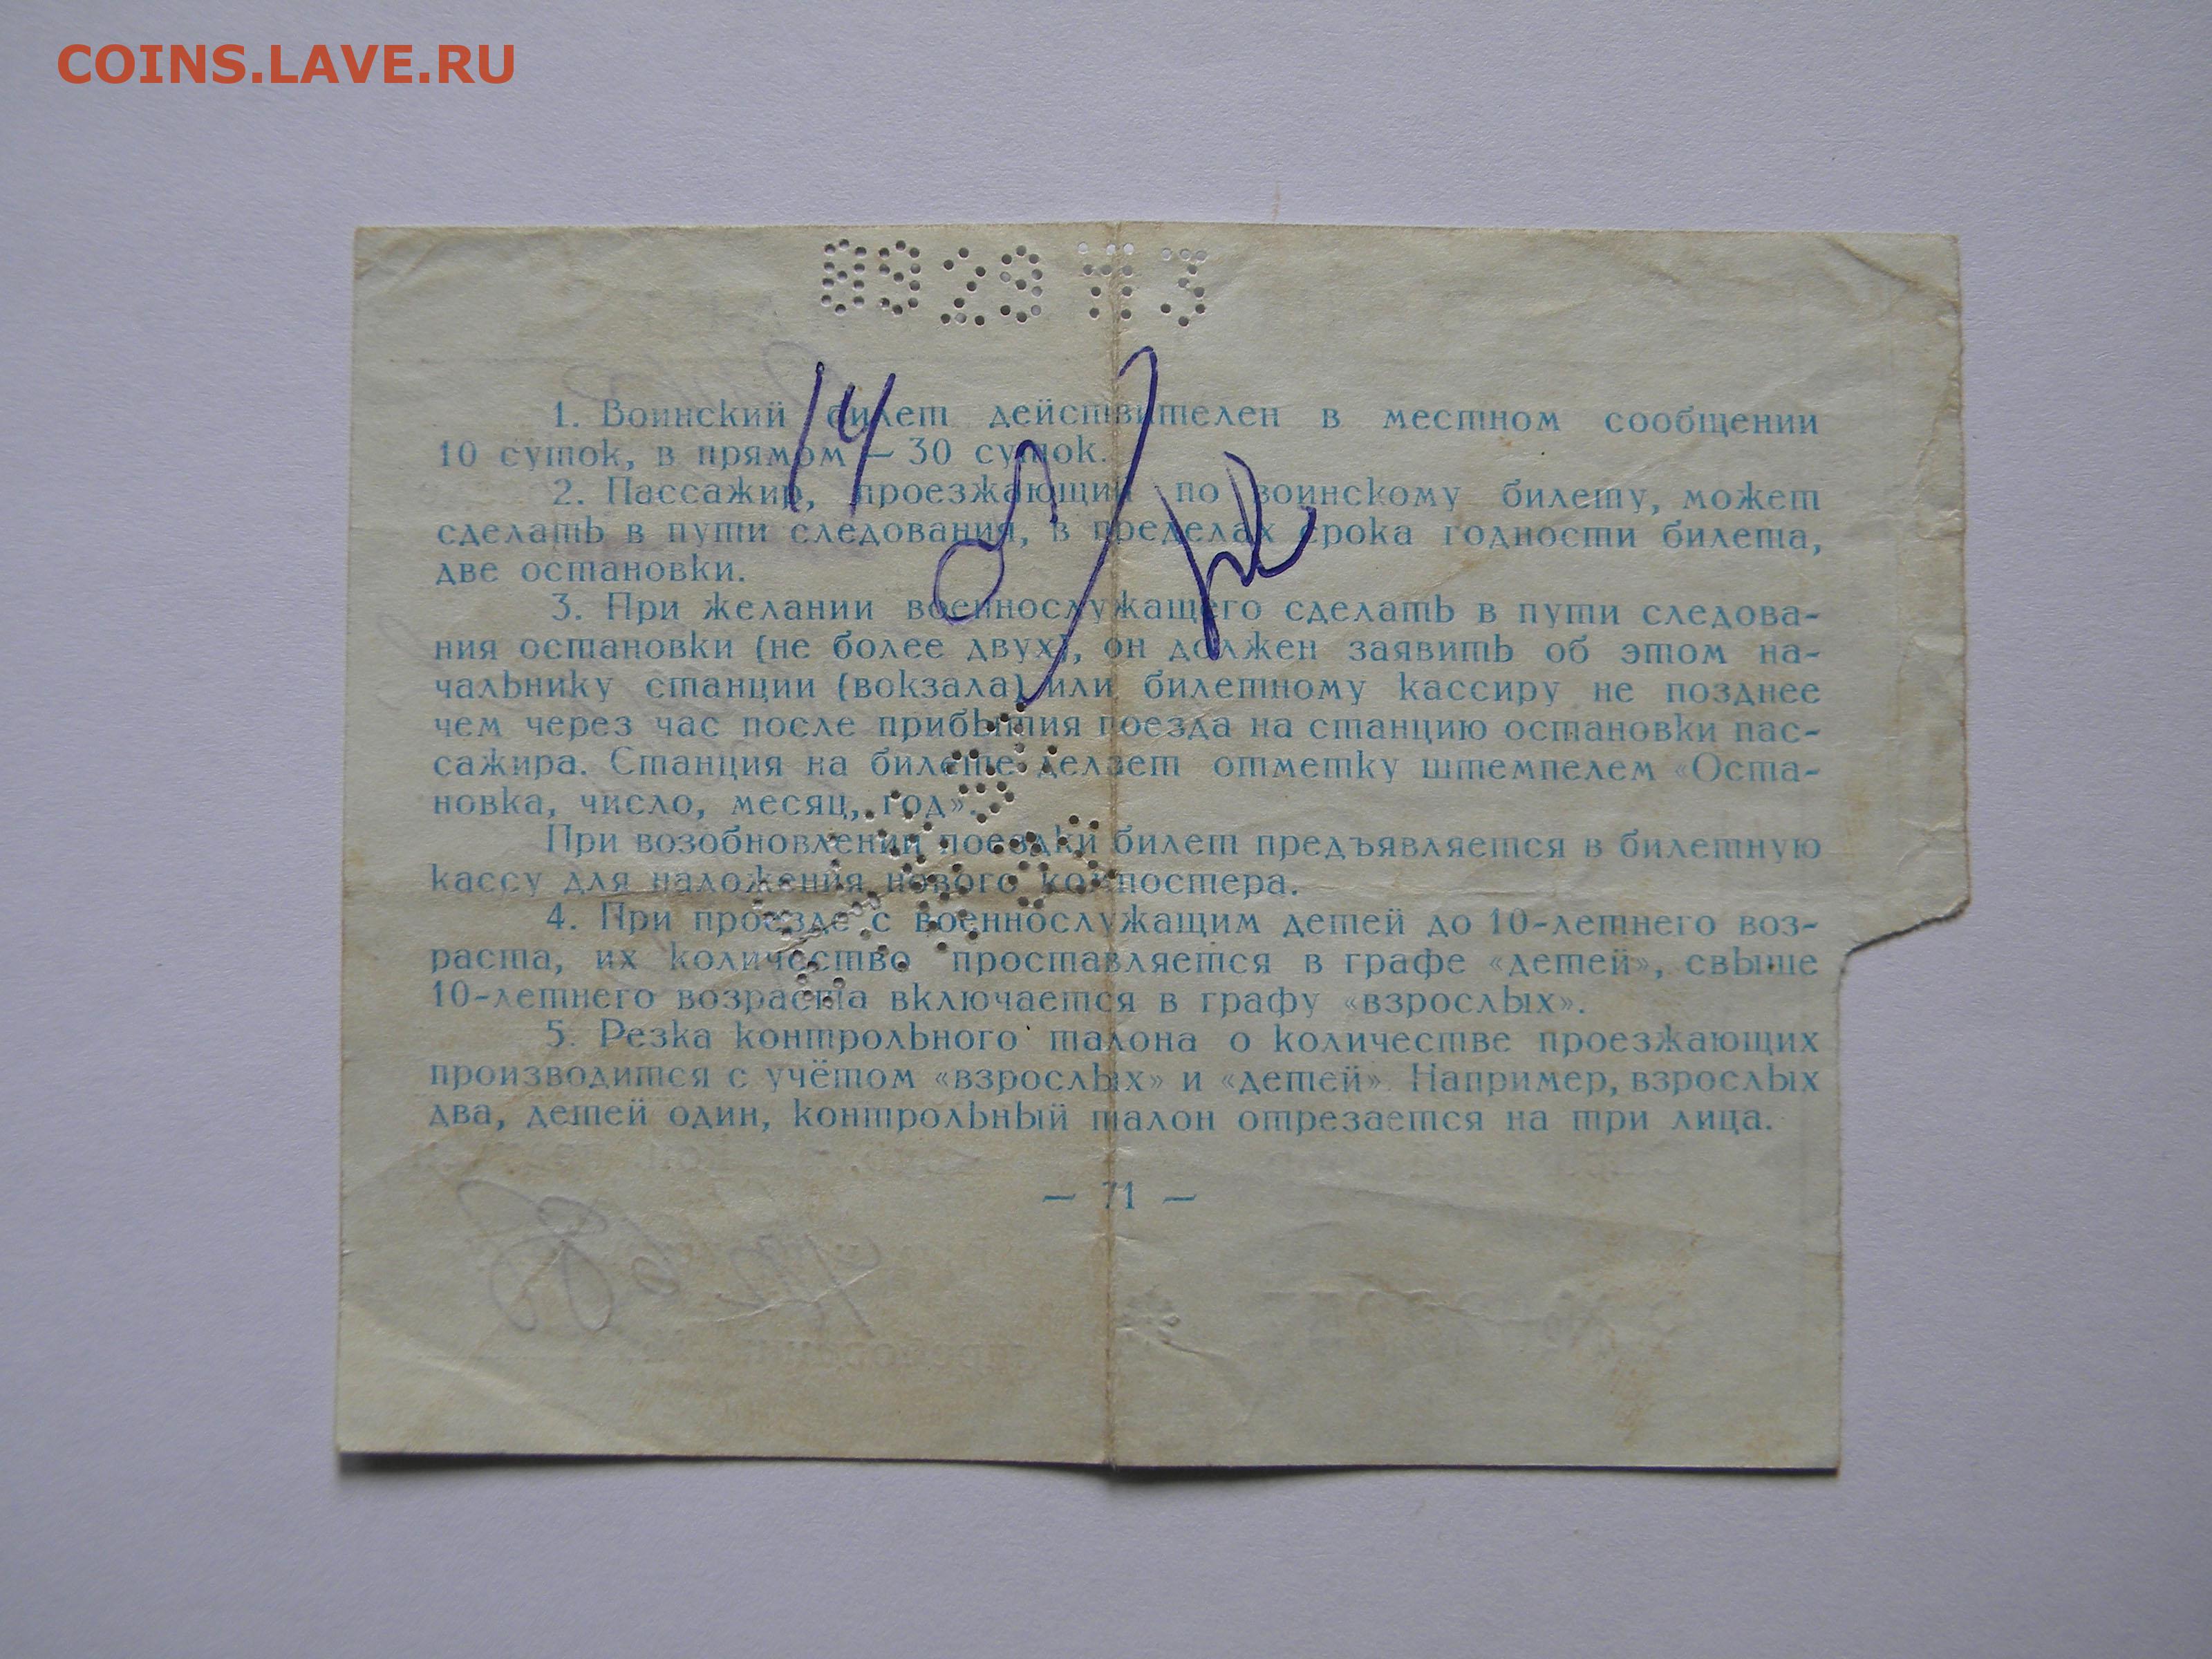 COINS.LAVE.RU
14
1. Воинский билет действителен в местном сообщении
10 суток, в прямом — 30 суток.
2. Пассажир, проезжающий по воинскому билету, может
сделать в пути следования, в пределах срока годности билета,
две остановки.
3. При желании военнослужащего сделать в пути следова-
ния остановки (не более двух), он должен заявить об этом на-
чальнику станции (вокзала) или билетному кассиру не позднее
чем через час после прибытия поезда на станцию остановки пас-
сажира. Станция на билете делает отметку штемпелем «Оста-
новка, число, месяц, год».
При возобновлении поездки билет предъявляется в билетную
кассу для наложения нового компостера.
4. При проезде с военнослужащим детей до 10-летнего воз-
раста, их количество проставляется в графе «детей», свыше
10-летнего возраста включается в графу «взрослых».
5. Резка контрольного талона о количестве проезжающих
производится с учётом «взрослых» и «детей». Например, взрослых
два, детей один, контрольный талон отрезается на три лица.
— 71 —